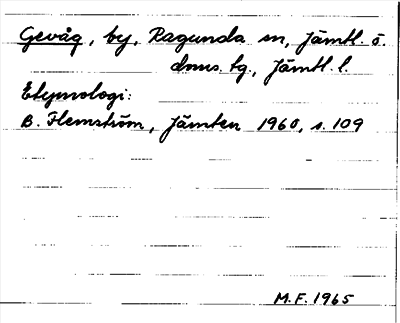 Gevåg, by, Ragunda sn, Jämtl. ö.
doms. tg., Jämtl. l.
Etymologi:
B. Flemström, Jämten 1960, s. 109
M.F. 1965